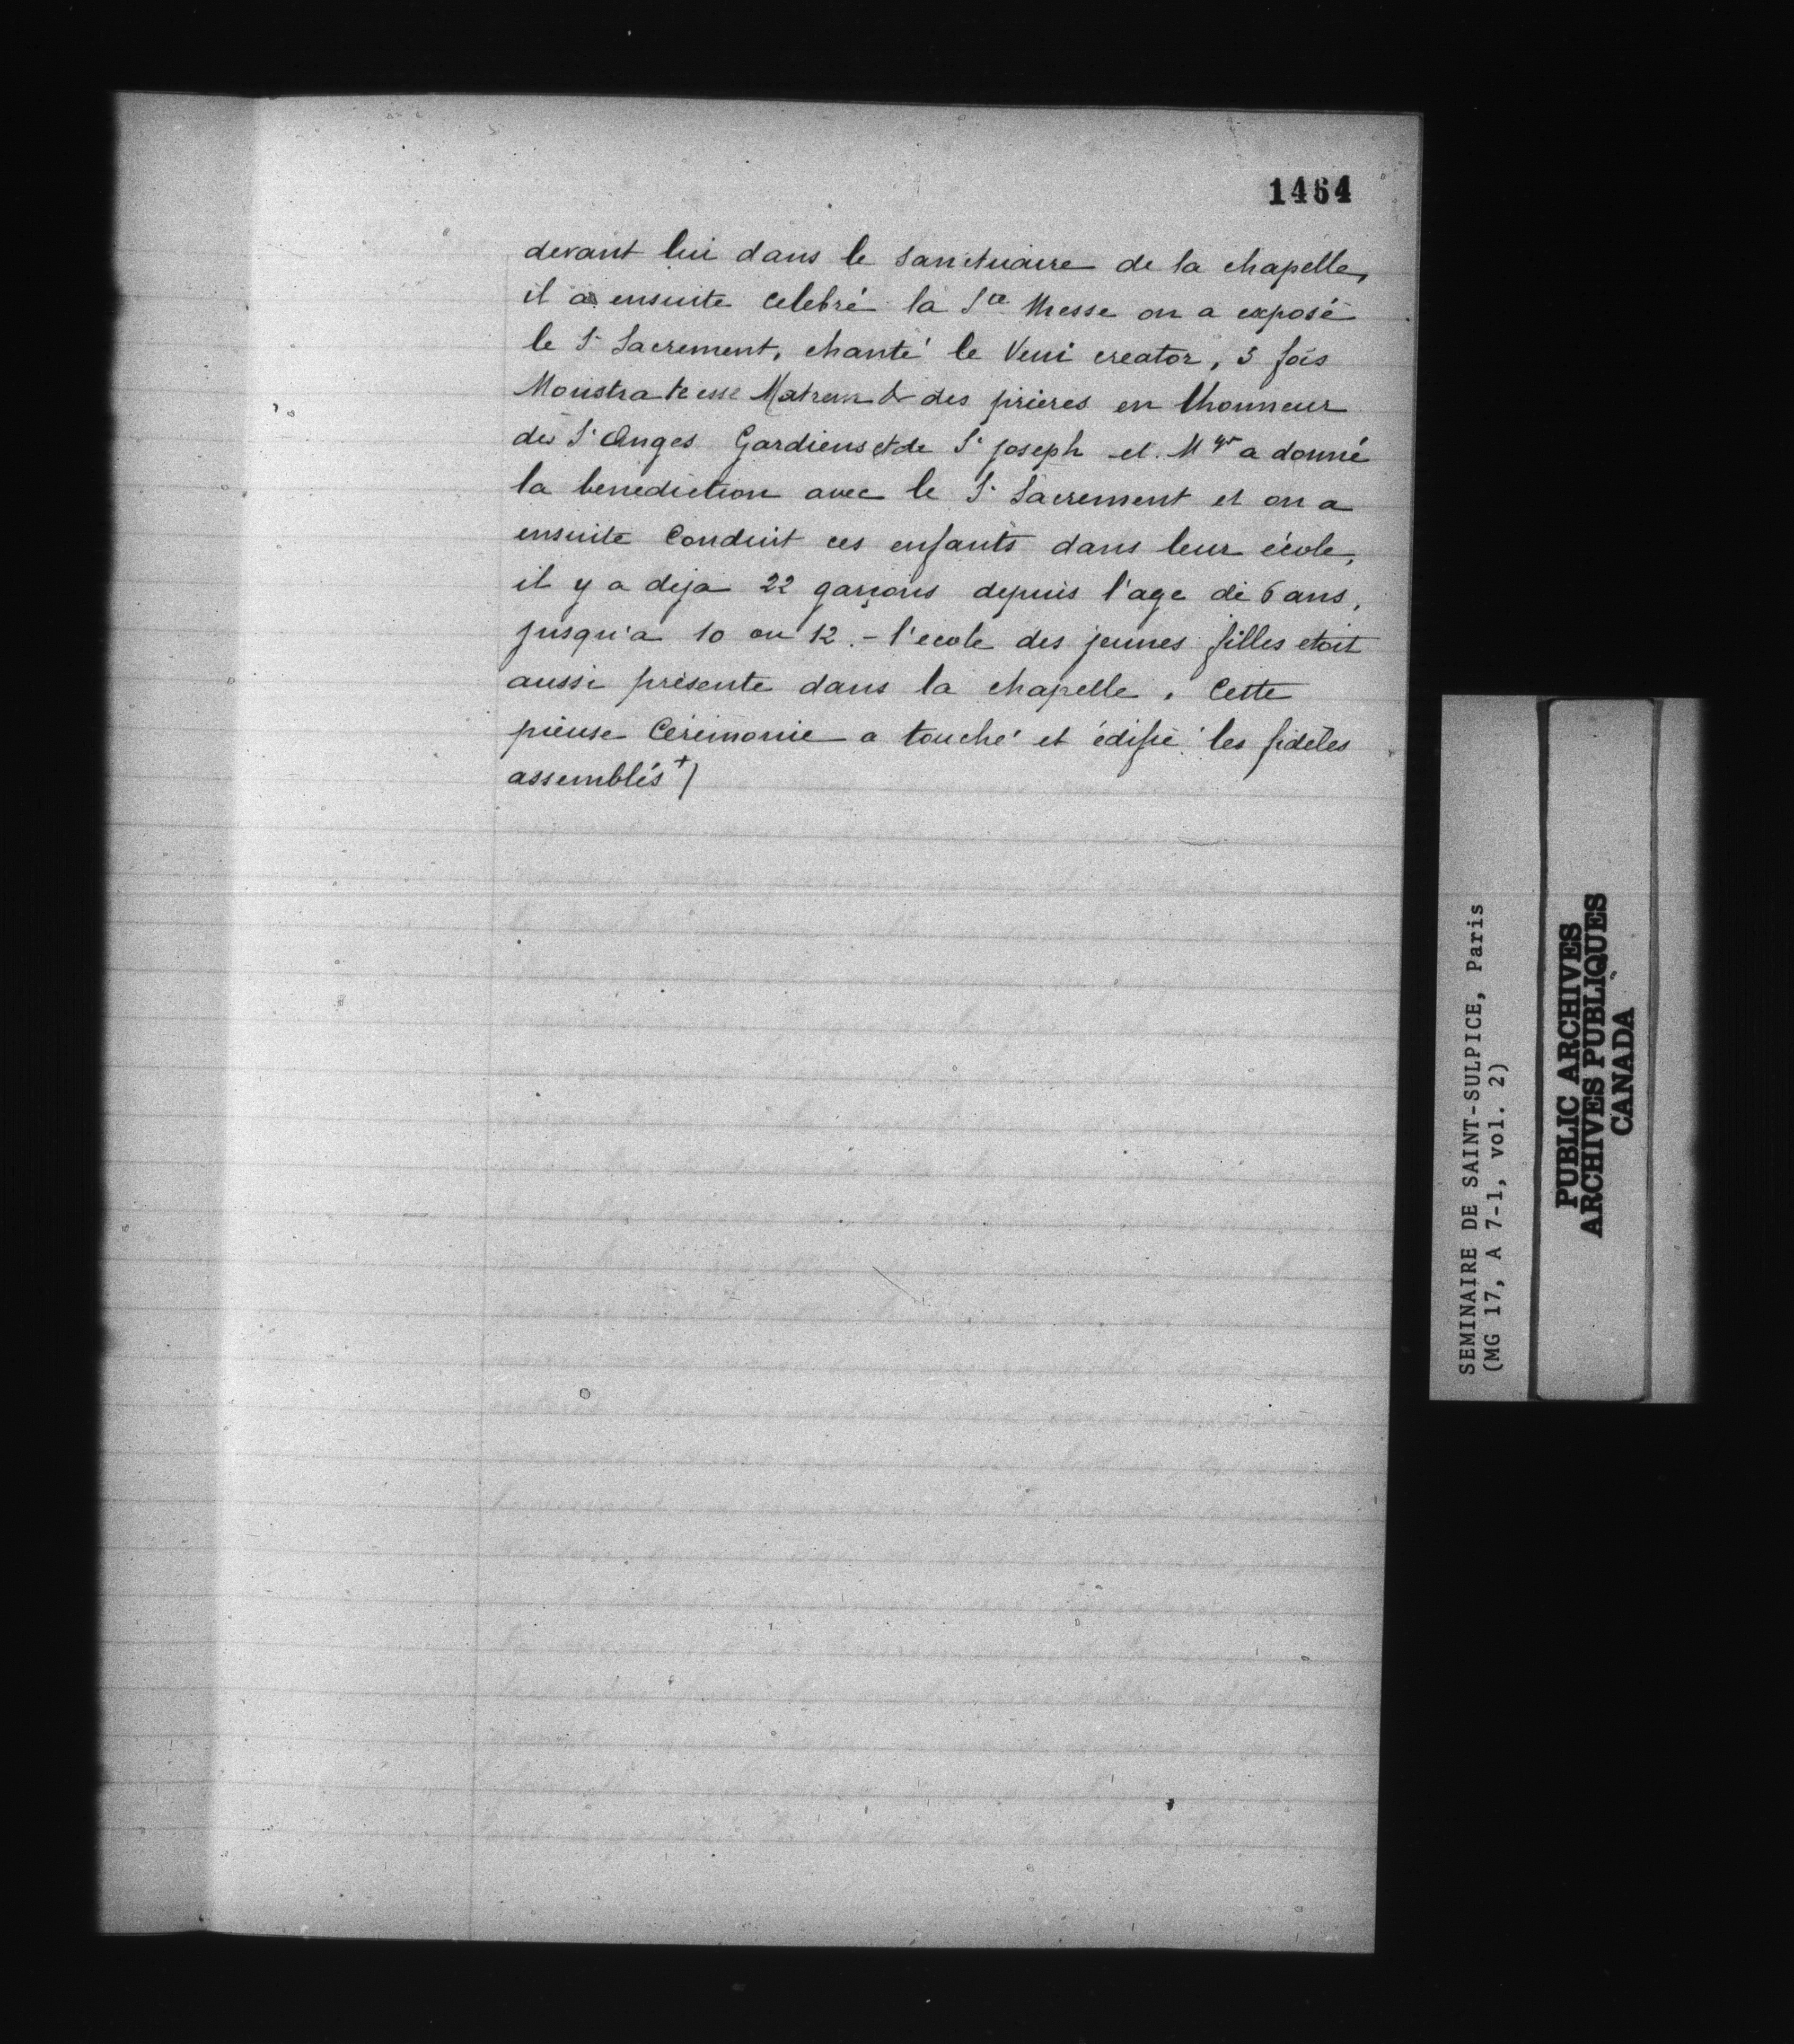 1464
devant lui dans le Sanctuaire de la chapelle,
il a ensuite celebré la Ste Messe on a exposé
le St Sacrement, chanté le Veni creator, 3 fois
Monstra te esse Matrem & des prieres en lhonneur
des Sts Anges Gardiens et de St joseph et Mgr a donné
la benediction avec le St Sacrement et on a
ensuite Conduit ces enfants dans leur école,
il y a deja 22 garçons depuis l'age de 6 ans,
jusqu'a 10 ou 12. - l'ecole des jeunes filles etoit
aussi présente dans la chapelle. Cette
pieuse Cérémonie a touché et édifié les fideles
assemblés +)
SEMINAIRE DE SAINT-SULPICE, Paris
(MG 17, A 7-1, vol. 2)
PUBLIC ARCHIVES
ARCHIVES PUBLIQUES
CANADA